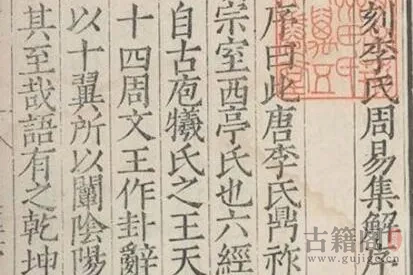 刻李氏周易集解序
序曰此唐李氏鼎祚
宗室西亭氏也六經
自古庖犧氏之王天
十四周文王作卦辭
以十翼所以闡陰陽
其至哉語有之乾坤
古籍阁
www.gujige.cn